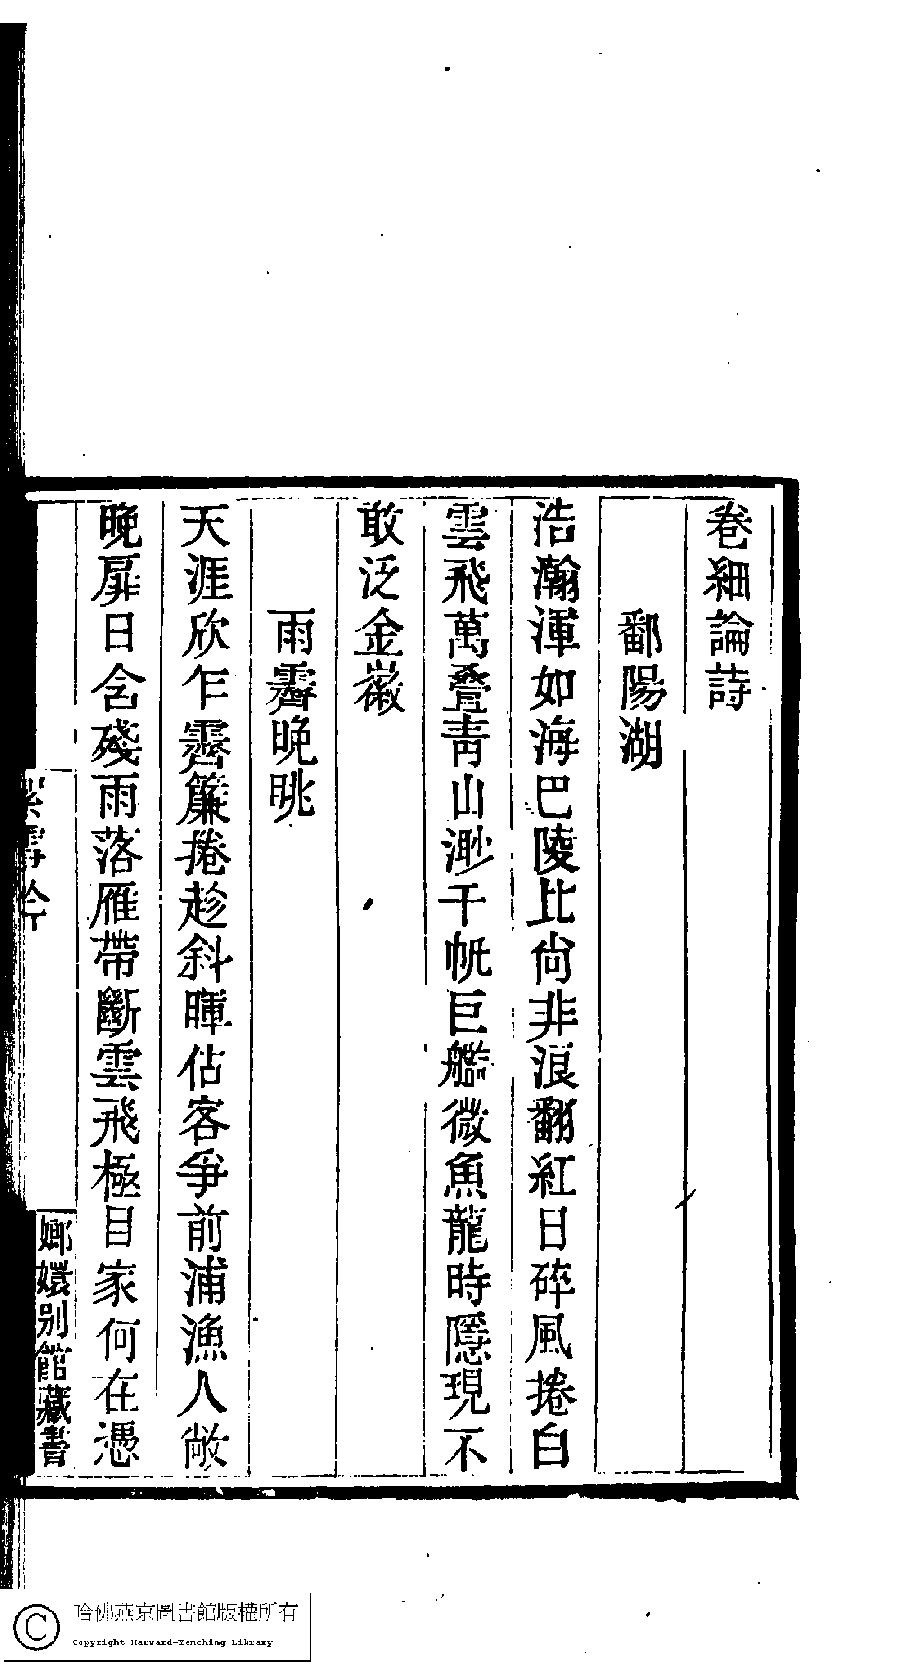 卷細論詩
鄱陽湖
浩瀚渾如海巴陵比尙非浪翻紅日碎風捲白
雲飛萬疊靑山渺千帆巨艦微魚龍時隱現不
敢泛金徽
雨霽晚眺
天涯欣乍霽簾捲趁斜暉估客爭前浦漁人敞
晚扉日含殘雨落雁帶斷雲飛極目家何在憑
嫏嬛别館藏書
哈佛燕京圖書館版權所有
Copyright Harvard-Yenching Library